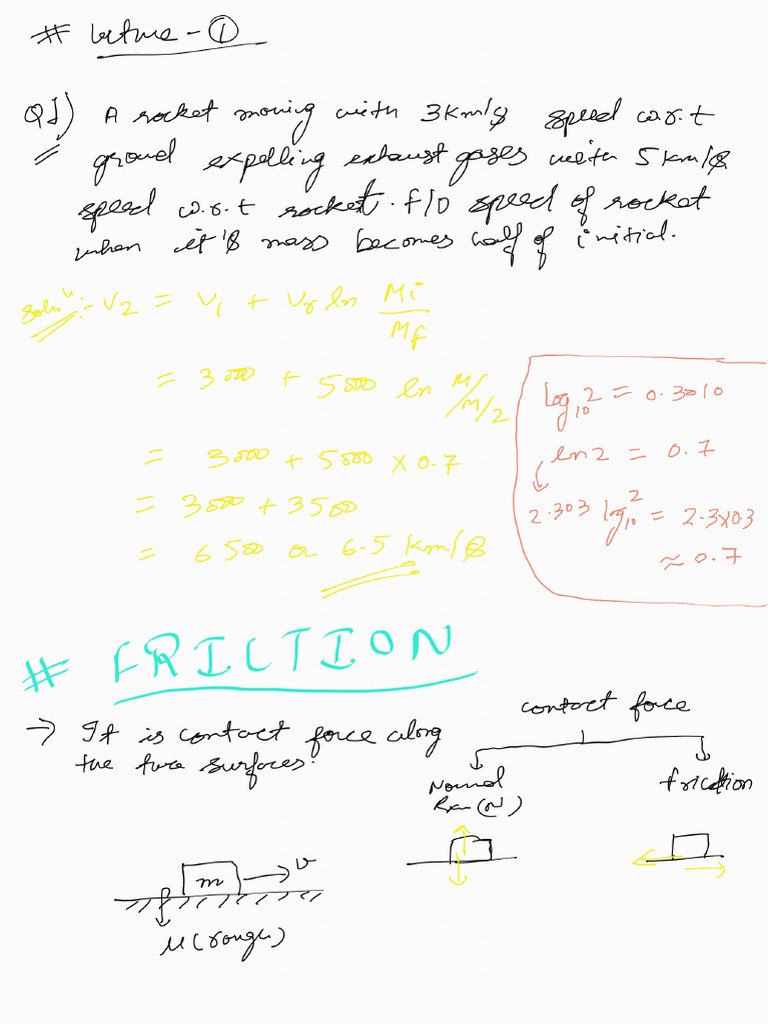 # Lecture - ①
Q1) A rocket moving with 3km/s speed w.r.t
ground expelling exhaust gases with 5km/s
speed w.r.t rocket. f/o speed of rocket
when it's mass becomes half of initial.
Solnᵘ:- V₂ = V₁ + Vr ln Mi/Mf
= 3000 + 5000 ln M/M/2
= 3000 + 5000 × 0.7
= 3000 + 3500
= 6500 or 6.5 km/s
log₁₀2 = 0.3010
ln2 = 0.7
2.303 log₁₀2 = 2.3×0.3
≈ 0.7
# FRICTION
→ It is contact force along
the two surfaces.
contact force
Normal
Rxn (N)
friction
m
v
μ(rough)